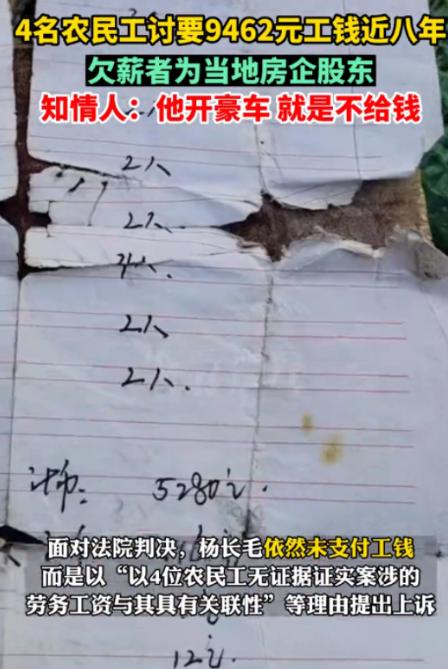 4名农民工讨要9462元工钱近八年
欠薪者为当地房企股东
知情人：他开豪车 就是不给钱
2人
2人.
4人.
2人
2人.
5280元.
面对法院判决，杨长毛依然未支付工钱
而是以“以4位农民工无证据证实案涉的
劳务工资与其具有关联性”等理由提出上诉
12元.